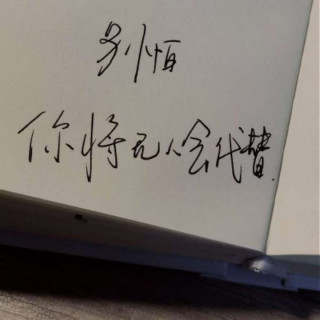 别怕
你将无人会代替.